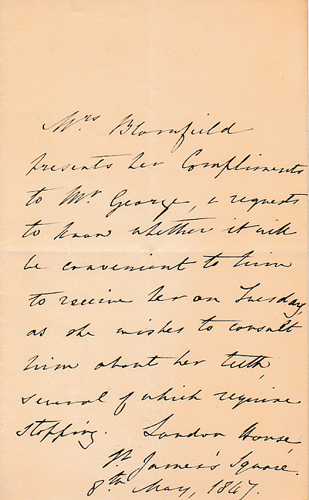 Mrs Blomfield
presents her Compliments
to Mr George, & requests
to know whether it will
be convenient to him
to receive her on Tuesday,
as she wishes to consult
him about her teeth,
several of which require
stopping. London House,
St James's Square.
8th May, 1847.